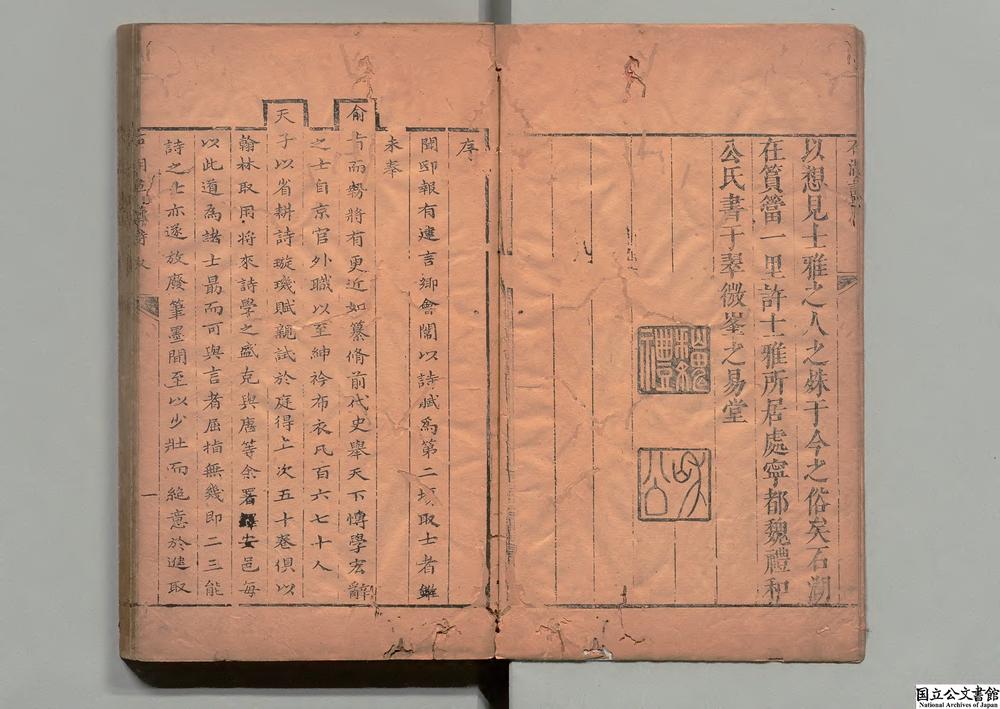 以想見士雅之人之姝于今之俗矣石湖
在篔簹一里許士雅所居處寧都魏禮和
公氏書于翠微峯之易堂
魏禮
和公
序
閱邸報有建言鄉會闈以詩賦為第二場取士者雖
未奉
俞旨而勢將有更近如纂脩前代史舉天下博學宏辭
之士自京官外職以至紳衿布衣凡百六七十人
天子以省耕詩璇璣賦親試於庭得上次五十卷俱以
翰林取用將來詩學之盛克與唐等余署安邑每
以此道為諸士最而可與言者屈指無幾即二三能
詩之士亦遂放廢筆墨間至以少壯而絕意於進取
一
国立公文書館
National Archives of Japan